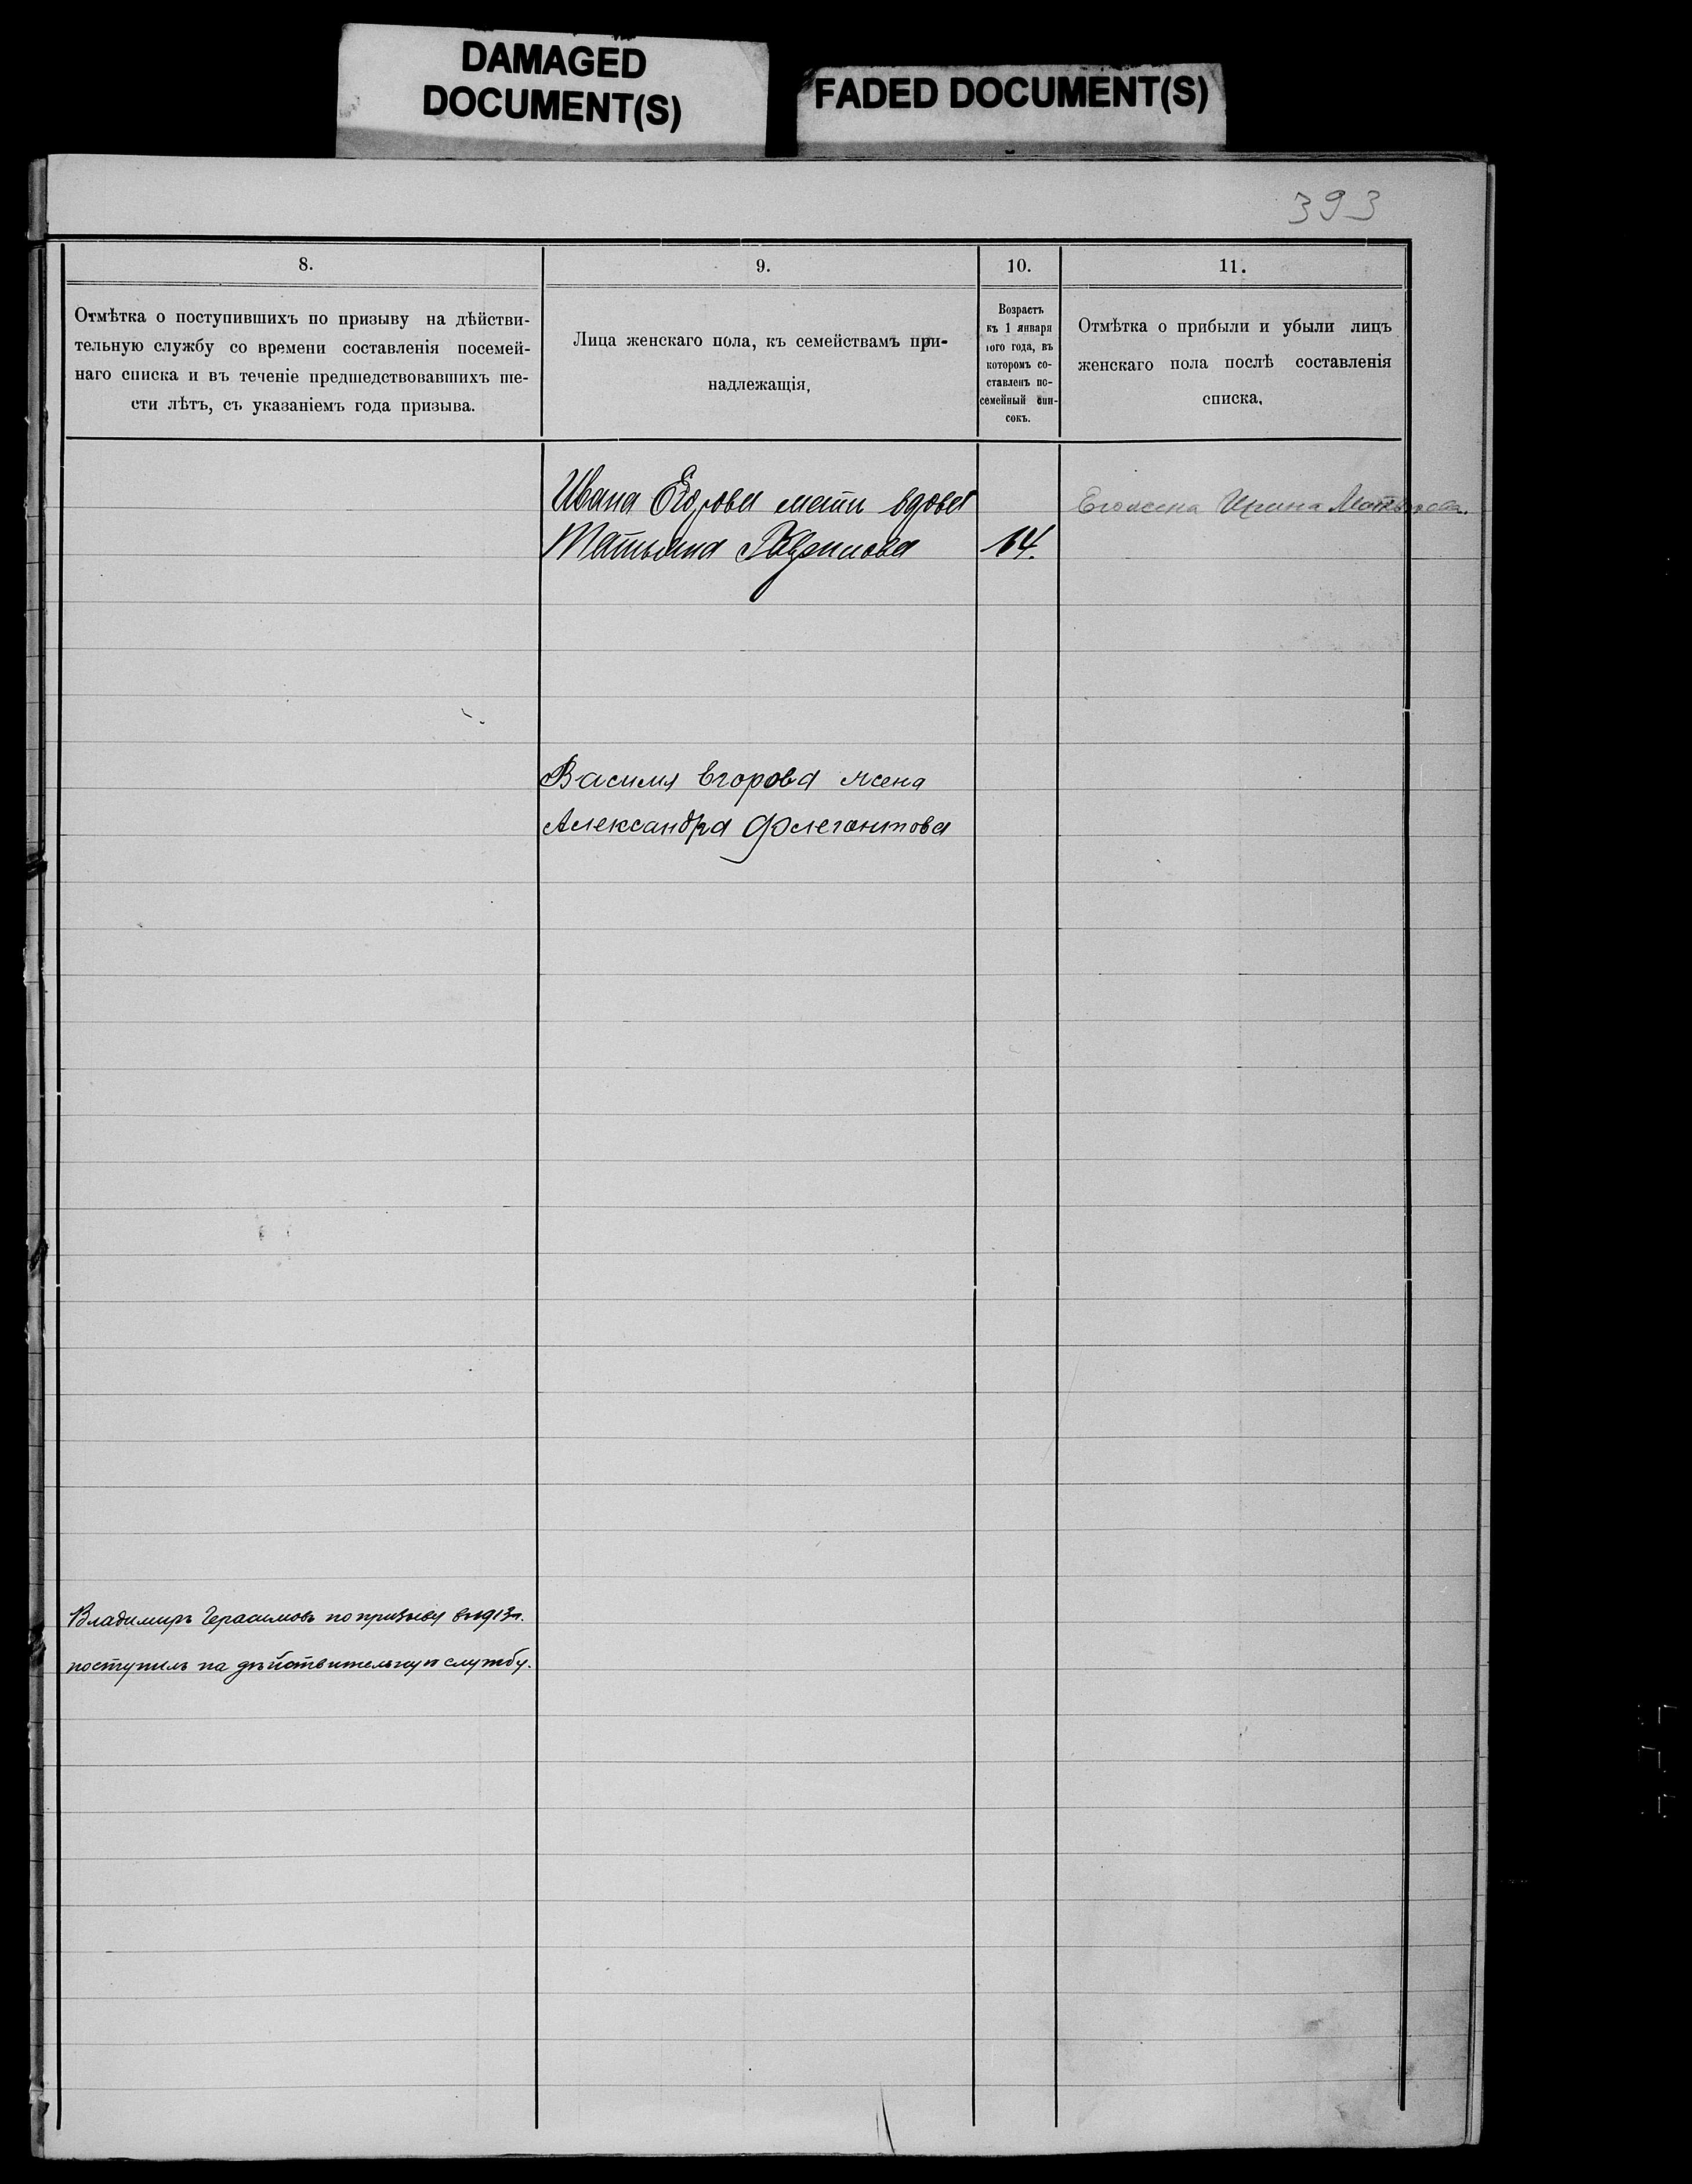 DAMAGED
DOCUMENT(S)
FADED DOCUMENT(S)
393
8.
Отмѣтка о поступившихъ по призыву на дѣйстви-
тельную службу со времени составленія посемей-
наго списка и въ теченіе предшедствовавшихъ ше-
сти лѣтъ, съ указаніемъ года призыва.
9.
Лица женскаго пола, къ семействамъ при-
надлежащія,
10.
Возрастъ
къ 1 января
того года, въ
которомъ со-
ставленъ по-
семейный спи-
сокъ.
11.
Отмѣтка о прибыли и убыли лицъ
женскаго пола послѣ составленія
списка,
Ивана Егорова мать вдова
Татьяна
64.
Его жена Ирина
Василия Егорова жена
Александра Флегонтова
Владимиръ Герасимовъ по призыву въ 1913 г.
поступилъ на дѣйствительную службу.